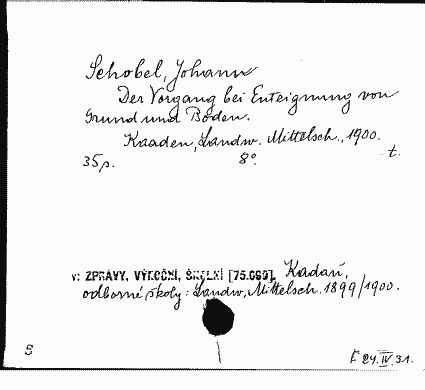 Schobel, Johann
Der Vorgang bei Enteignung von
Grund und Boden.
Kaaden, Landw. Mittelsch., 1900.
35p. 8°. t.
v: ZPRÁVY, VÝROČNÍ, ŠKOLNÍ [75.099], Kadaň,
odborné školy: Landw. Mittelsch. 1899/1900.
S
24.IV.31.